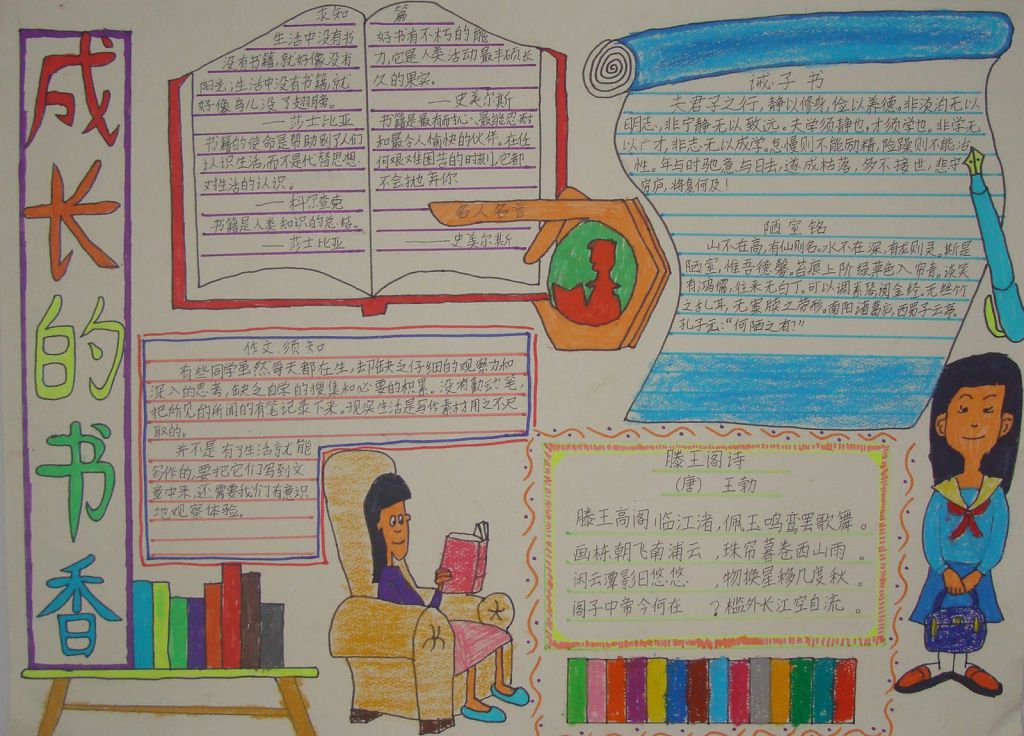 成长的书香
求知篇
生活中没有书
没有书籍,就好像没有
阳光;生活中没有书籍,就
好像鸟儿没了翅膀。
——莎士比亚
书籍的使命是帮助别了人们
认识生活,而不是代替思想
对生活的认识。
——科尔查克
书籍是人类知识的总结。
——莎士比亚
好书有不朽的能
力,它是人类活动最丰硕长
久的果实。
——史美尔斯
书籍是最有耐心、最能忍耐
和最令人愉快的伙伴。在任
何艰难困苦的时刻,它都
不会抛弃你
——史美尔斯
名人名言
诫子书
夫君子之行,静以修身,俭以养德。非淡泊无以
明志,非宁静无以致远。夫学须静也,才须学也。非学无
以广才,非志无以成学。怠慢则不能励精,险躁则不能治
性。年与时驰,意与日去,遂成枯落,多不接世,悲守
穷庐,将复何及!
陋室铭
山不在高,有仙则名。水不在深,有龙则灵。斯是
陋室,惟吾德馨。苔痕上阶绿,草色入帘青。谈笑
有鸿儒,往来无白丁。可以调素琴,阅金经。无丝竹
之乱耳,无案牍之劳形。南阳诸葛庐,西蜀子云亭。
孔子云:“何陋之有?”
作文须知
有些同学虽然每天都在生,却缺乏仔细的观察力和
深入的思考,缺乏自学的搜集和必要的积累。没有勤动笔,
把所见的所闻的有笔记录下来。现实生活是写作素材用之不尽
取的。
并不是有了生活就能
写作的,要把它们写到文
章中来,还需要我们有意识
地观察体验。
滕王阁诗
(唐) 王勃
滕王高阁临江渚,佩玉鸣鸾罢歌舞。
画栋朝飞南浦云,珠帘暮卷西山雨。
闲云潭影日悠悠,物换星移几度秋。
阁子中帝今何在?槛外长江空自流。